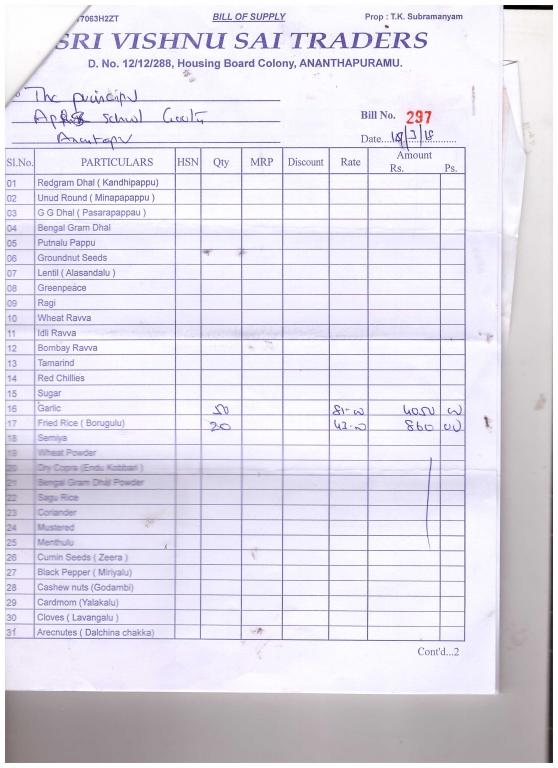 7063H2ZT BILL OF SUPPLY Prop : T.K. Subramanyam
SRI VISHNU SAI TRADERS
D. No. 12/12/288, Housing Board Colony, ANANTHAPURAMU.
The principal
school
Bill No. 297
Date....18/3/18
Sl.No. PARTICULARS HSN Qty MRP Discount Rate Amount Rs. Ps.
01 Redgram Dhal ( Kandhipappu)
02 Unud Round ( Minapapappu )
03 G G Dhal ( Pasarapappau )
04 Bengal Gram Dhal
05 Putnalu Pappu
06 Groundnut Seeds
07 Lentil ( Alasandalu )
08 Greenpeace
09 Ragi
10 Wheat Ravva
11 Idli Ravva
12 Bombay Ravva
13 Tamarind
14 Red Chillies
15 Sugar
16 Garlic 50 81-00 4050 00
17 Fried Rice ( Borugulu) 20 43-00 860 00
18 Semiya
19 Wheat Powder
20 Dry Copra (Endu Kobbari )
21 Bengal Gram Dhal Powder
22 Sagu Rice
23 Coriander
24 Mustered
25 Menthulu
26 Cumin Seeds ( Zeera )
27 Black Pepper ( Miriyalu)
28 Cashew nuts (Godambi)
29 Cardmom (Yalakalu)
30 Cloves ( Lavangalu )
31 Arecnutes ( Dalchina chakka)
Cont'd...2